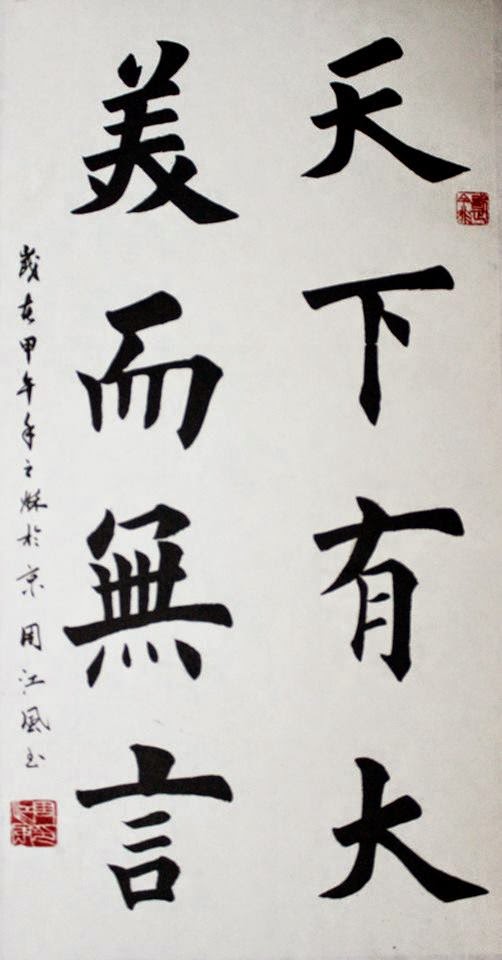 天下有大
美而無言
歲在甲午年之秋於京 周江風书